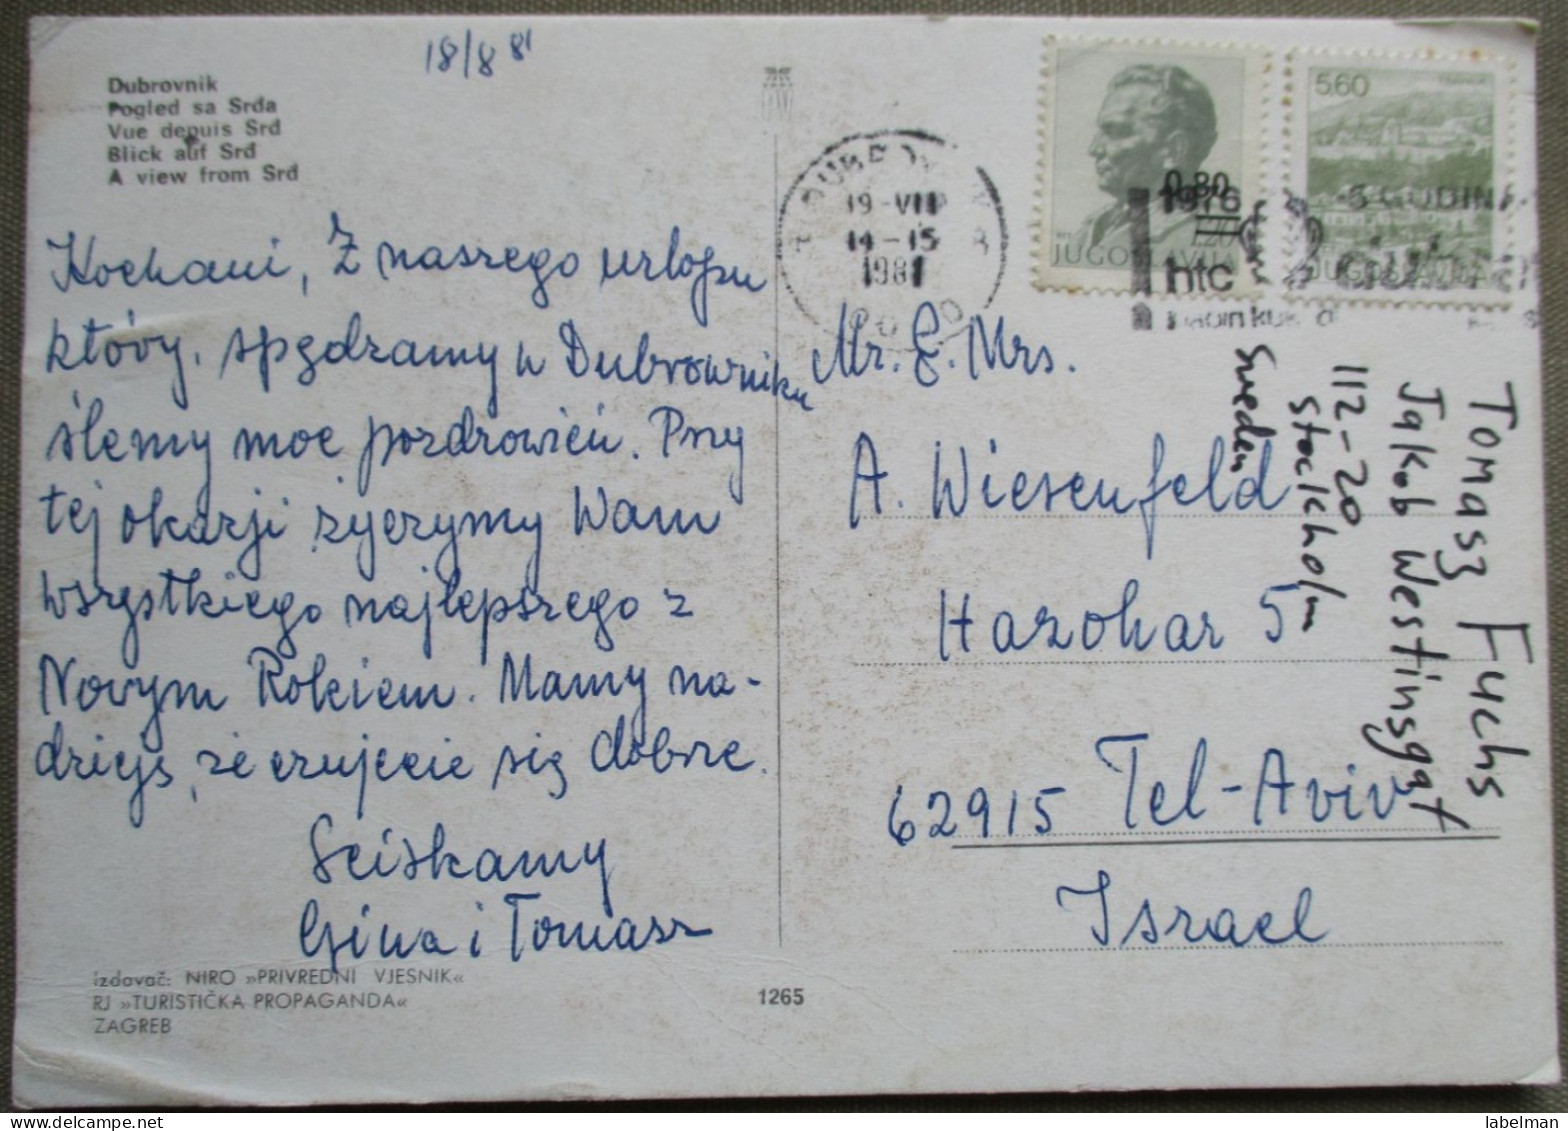 18/8 81
Dubrovnik
Pogled sa Srđa
Vue depuis Srđ
Blick auf Srđ
A view from Srđ
Kochani, Z naszego urlopu
który, spędzamy w Dubrowniku
ślemy moc pozdrowień. Przy
tej okazji życzymy Wam
wszystkiego najlepszego z
Nowym Rokiem. Mamy na-
dzieję, że czujecie się dobrze.
Sciskamy
Gina i Tomasz
izdavač: NIRO »PRIVREDNI VJESNIK«
RJ »TURISTIČKA PROPAGANDA«
ZAGREB
1265
19-VIII
14-15
1981
0,80
1,20
JUGOSLAVIJA
5,60
1976
5 GODINA
htc
Mr. & Mrs.
A. Wiesenfeld
Hazohar 5
62915 Tel-Aviv
Israel
Tomasz Fuchs
Jakob Westinsgat
112-20
Stockholm
Sweden
labelman